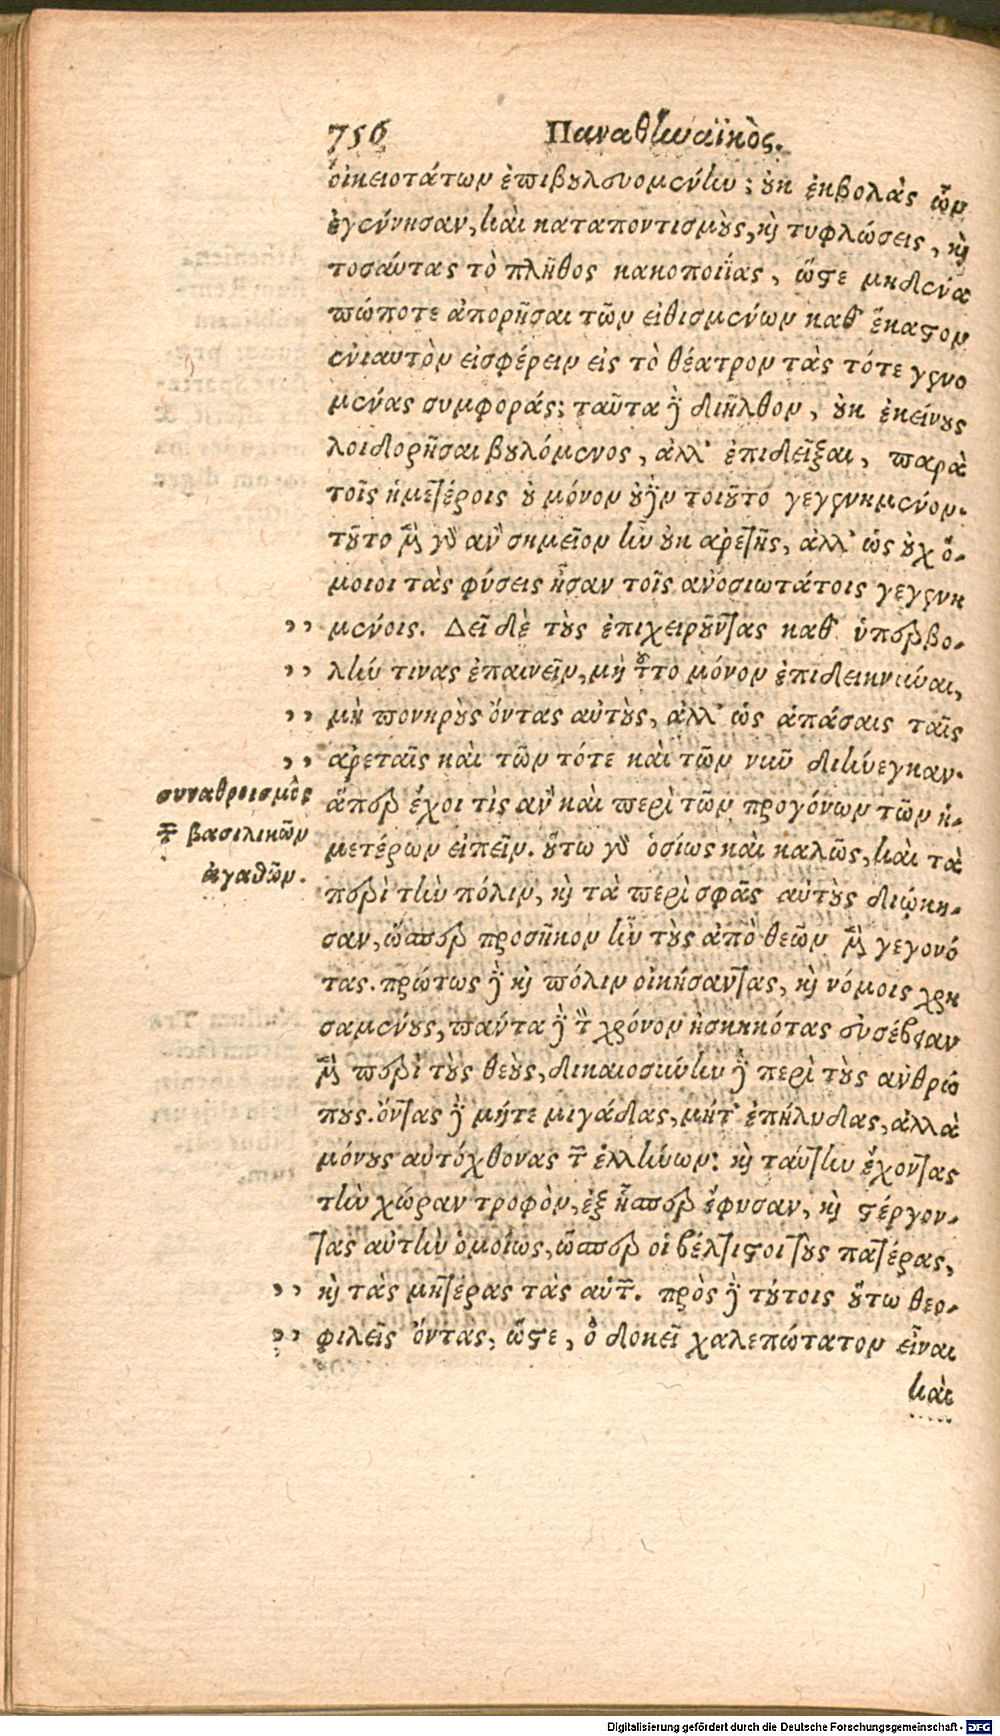 756 Παναθηναϊκὸς.
οἰκειοτάτων ἐπιβουλευομένων; οὐκ ἐκβολὰς ὧν
ἐγέννησαν, καὶ καταποντισμοὺς, καὶ τυφλώσεις, καὶ
τοσαύτας τὸ πλῆθος κακοποιΐας, ὥστε μηδένα
πώποτε ἀπορῆσαι τῶν εἰθισμένων καθ' ἕκαστον
ἐνιαυτὸν εἰσφέρειν εἰς τὸ θέατρον τὰς τότε γενο
μένας συμφοράς; ταῦτα δὲ διῆλθον, οὐκ ἐκείνους
λοιδορῆσαι βουλόμενος, ἀλλ' ἐπιδεῖξαι, παρὰ
τοῖς ἡμετέροις οὐ μόνον οὐδὲν τοιοῦτο γεγενημένον·
τοῦτο μὲν γὰρ ἂν σημεῖον ἦν οὐκ ἀρετῆς, ἀλλ' ὡς οὐχ ὅ-
μοιοι τὰς φύσεις ἦσαν τοῖς ἀνοσιωτάτοις γεγενη
,, μένοις. Δεῖ δὲ τοὺς ἐπιχειροῦντας καθ' ὑπερβο-
,, λήν τινας ἐπαινεῖν, μὴ τοῦτο μόνον ἐπιδεικνύναι,
,, μὴ πονηροὺς ὄντας αὐτοὺς, ἀλλ' ὡς ἁπάσαις ταῖς
,, ἀρεταῖς καὶ τῶν τότε καὶ τῶν νῦν διήνεγκαν·
συναθροισμὸς
τῶν βασιλικῶν
ἀγαθῶν.
ἅπερ ἔχοι τὶς ἂν καὶ περὶ τῶν προγόνων τῶν ἡ-
μετέρων εἰπεῖν. οὕτω γὰρ ὁσίως καὶ καλῶς, καὶ τὰ
περὶ τὴν πόλιν, καὶ τὰ περὶ σφᾶς αὐτοὺς διῴκη-
σαν, ὥσπερ προσῆκον ἦν τοὺς ἀπὸ θεῶν μὲν γεγονό
τας. πρώτως δὲ καὶ πόλιν οἰκήσαντας, καὶ νόμοις χρη
σαμένους, πάντα δὲ τὸν χρόνον ἠσκηκότας εὐσέβειαν
μὲν περὶ τοὺς θεοὺς, δικαιοσύνην δὲ περὶ τοὺς ἀνθρώ
πους. ὄντας δὲ μήτε μιγάδας, μήτ' ἐπήλυδας, ἀλλὰ
μόνους αὐτόχθονας τῶν ἑλλήνων: καὶ ταύτην ἔχοντας
τὴν χώραν τροφὸν, ἐξ ἧσπερ ἔφυσαν, καὶ στέργον-
τας αὐτὴν ὁμοίως, ὥσπερ οἱ βέλτιστοι τοὺς πατέρας,
,, καὶ τὰς μητέρας τὰς αὑτῶν. πρὸς δὲ τούτοις οὕτω θεο-
,, φιλεῖς ὄντας, ὥστε, ὃ δοκεῖ χαλεπώτατον εἶναι
καὶ
Digitalisierung gefördert durch die Deutsche Forschungsgemeinschaft - DFG